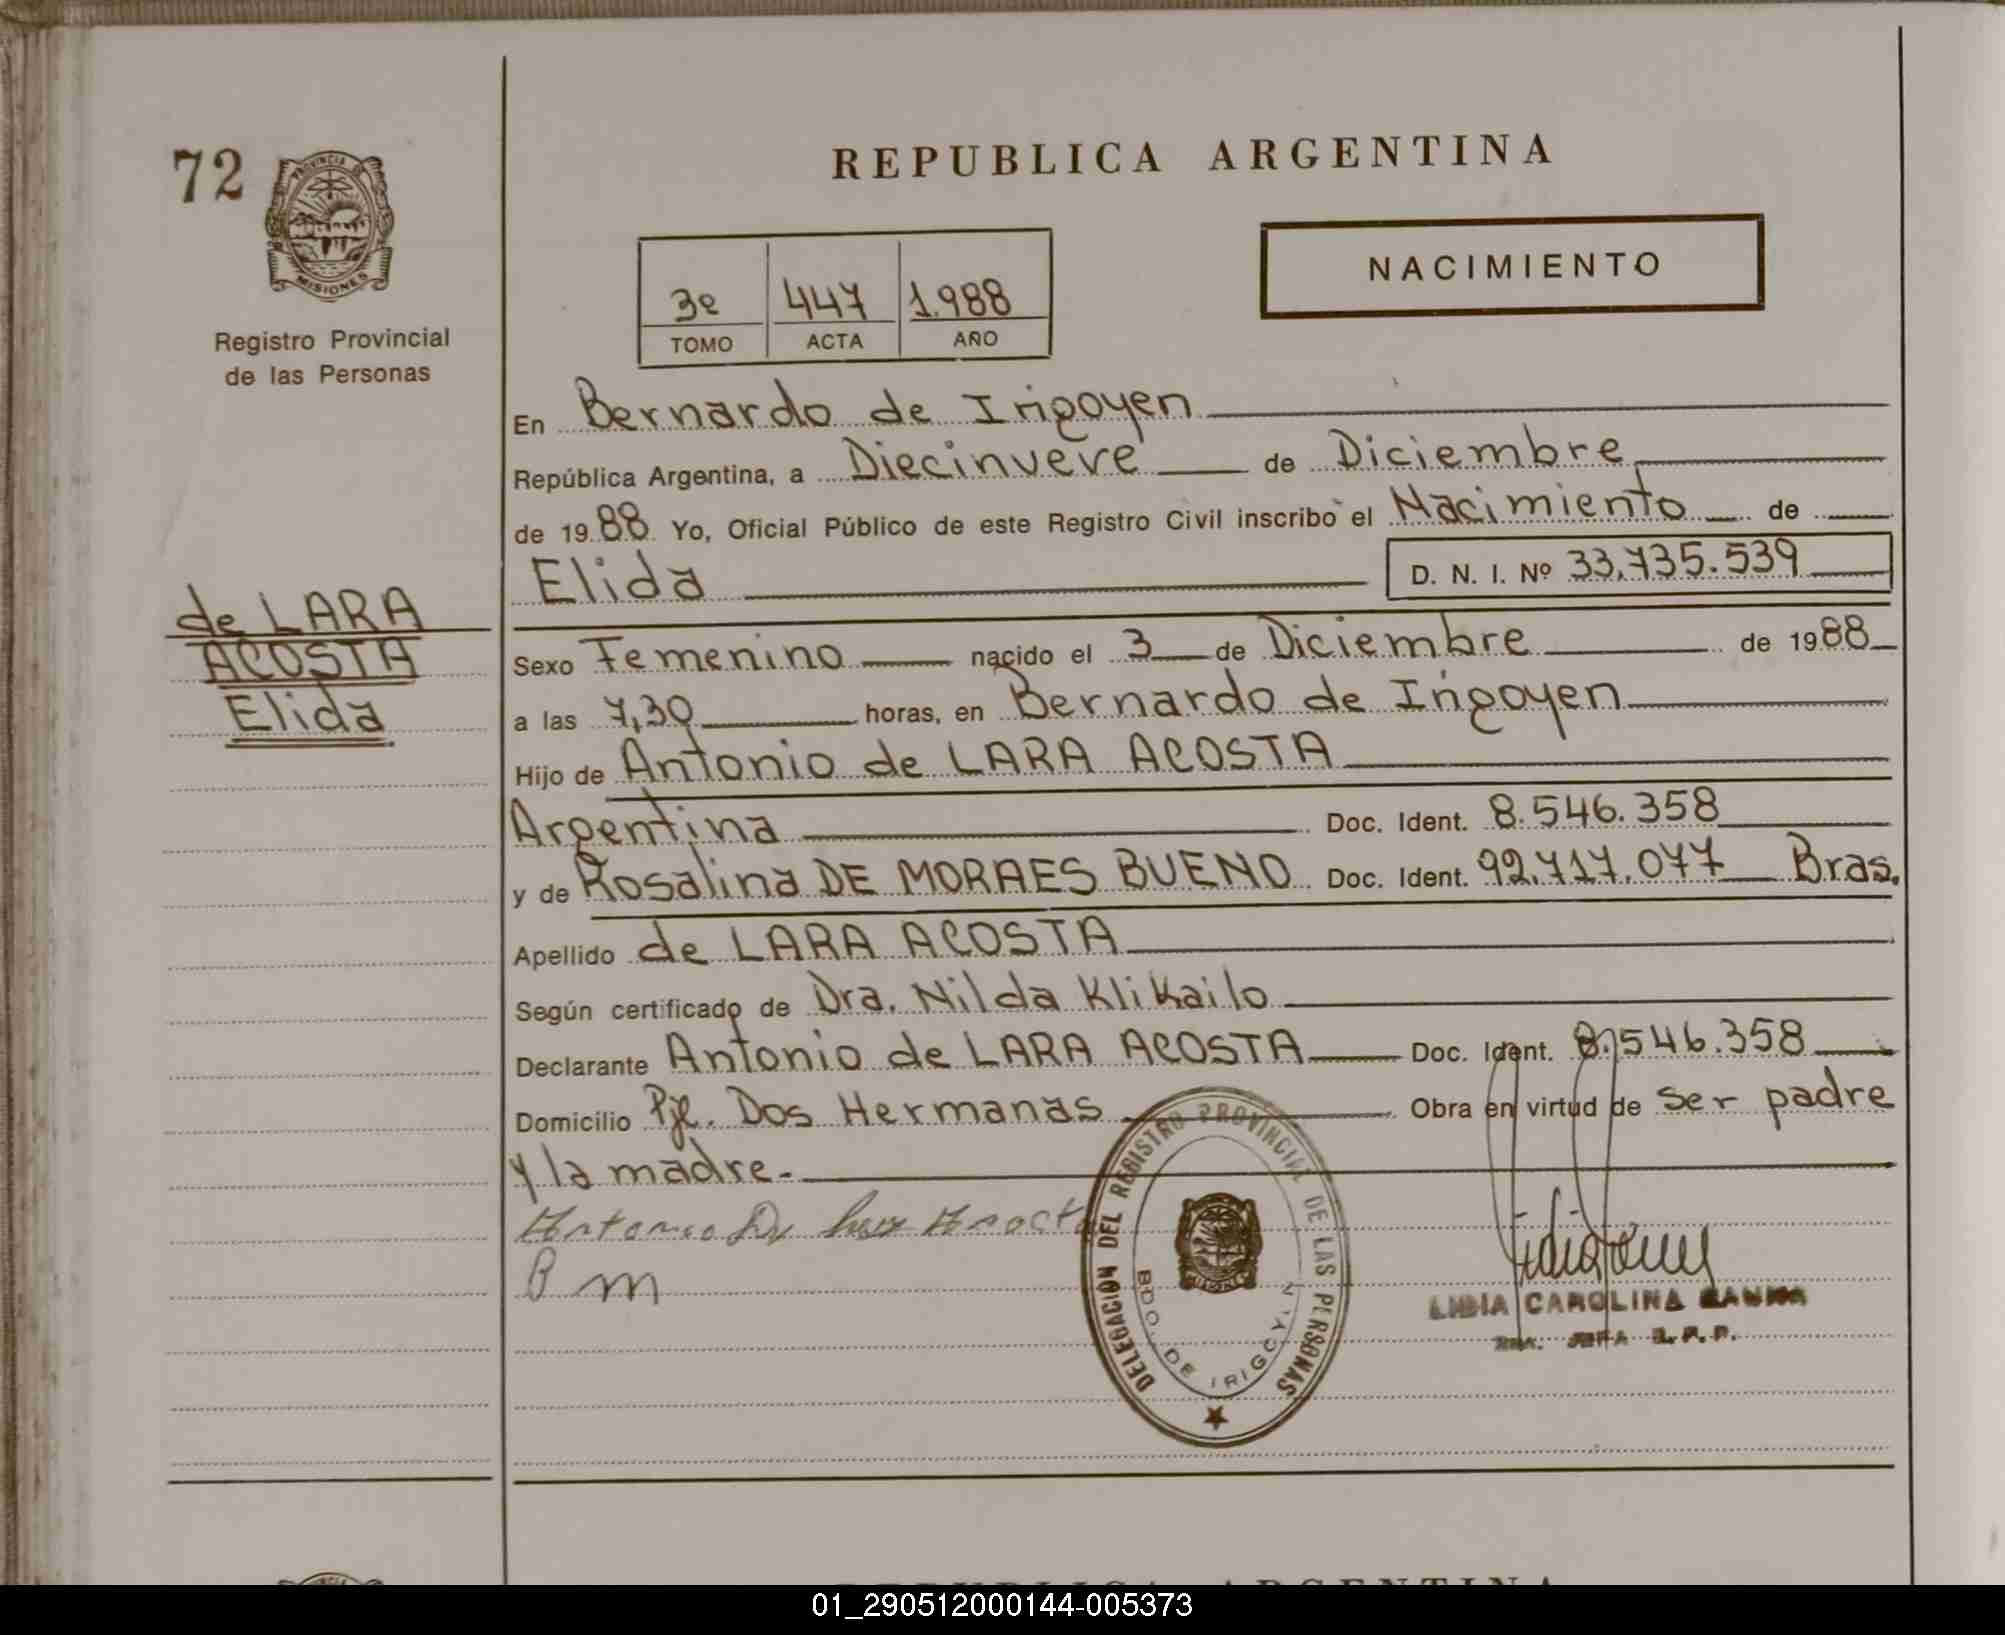 72
PROVINCIA DE
MISIONES
Registro Provincial
de las Personas
de LARA
ACOSTA
Elida
REPUBLICA ARGENTINA
3e 447 1.988
TOMO ACTA AÑO
NACIMIENTO
En Bernardo de Irigoyen
República Argentina, a Diecinueve de Diciembre
de 1988 Yo, Oficial Público de este Registro Civil inscribo el Nacimiento de
Elida D. N. I. Nº 33.735.539
Sexo Femenino nacido el 3 de Diciembre de 1988
a las 7,30 horas, en Bernardo de Irigoyen
Hijo de Antonio de LARA ACOSTA
Argentina Doc. Ident. 8.546.358
y de Rosalina DE MORAES BUENO Doc. Ident. 92.717.077 Bras.
Apellido de LARA ACOSTA
Según certificado de Dra. Nilda Klikailo
Declarante Antonio de LARA ACOSTA Doc. Ident. 8.546.358
Domicilio Pje. Dos Hermanas Obra en virtud de ser padre
y la madre.-
Antonio De Lara Acosta
B m
DELEGACIÓN DEL REGISTRO PROVINCIAL DE LAS PERSONAS
BDO. DE IRIGOYEN
LIDIA CAROLINA
JEFA R.P.P.
REPUBLICA ARGENTINA
01_290512000144-005373